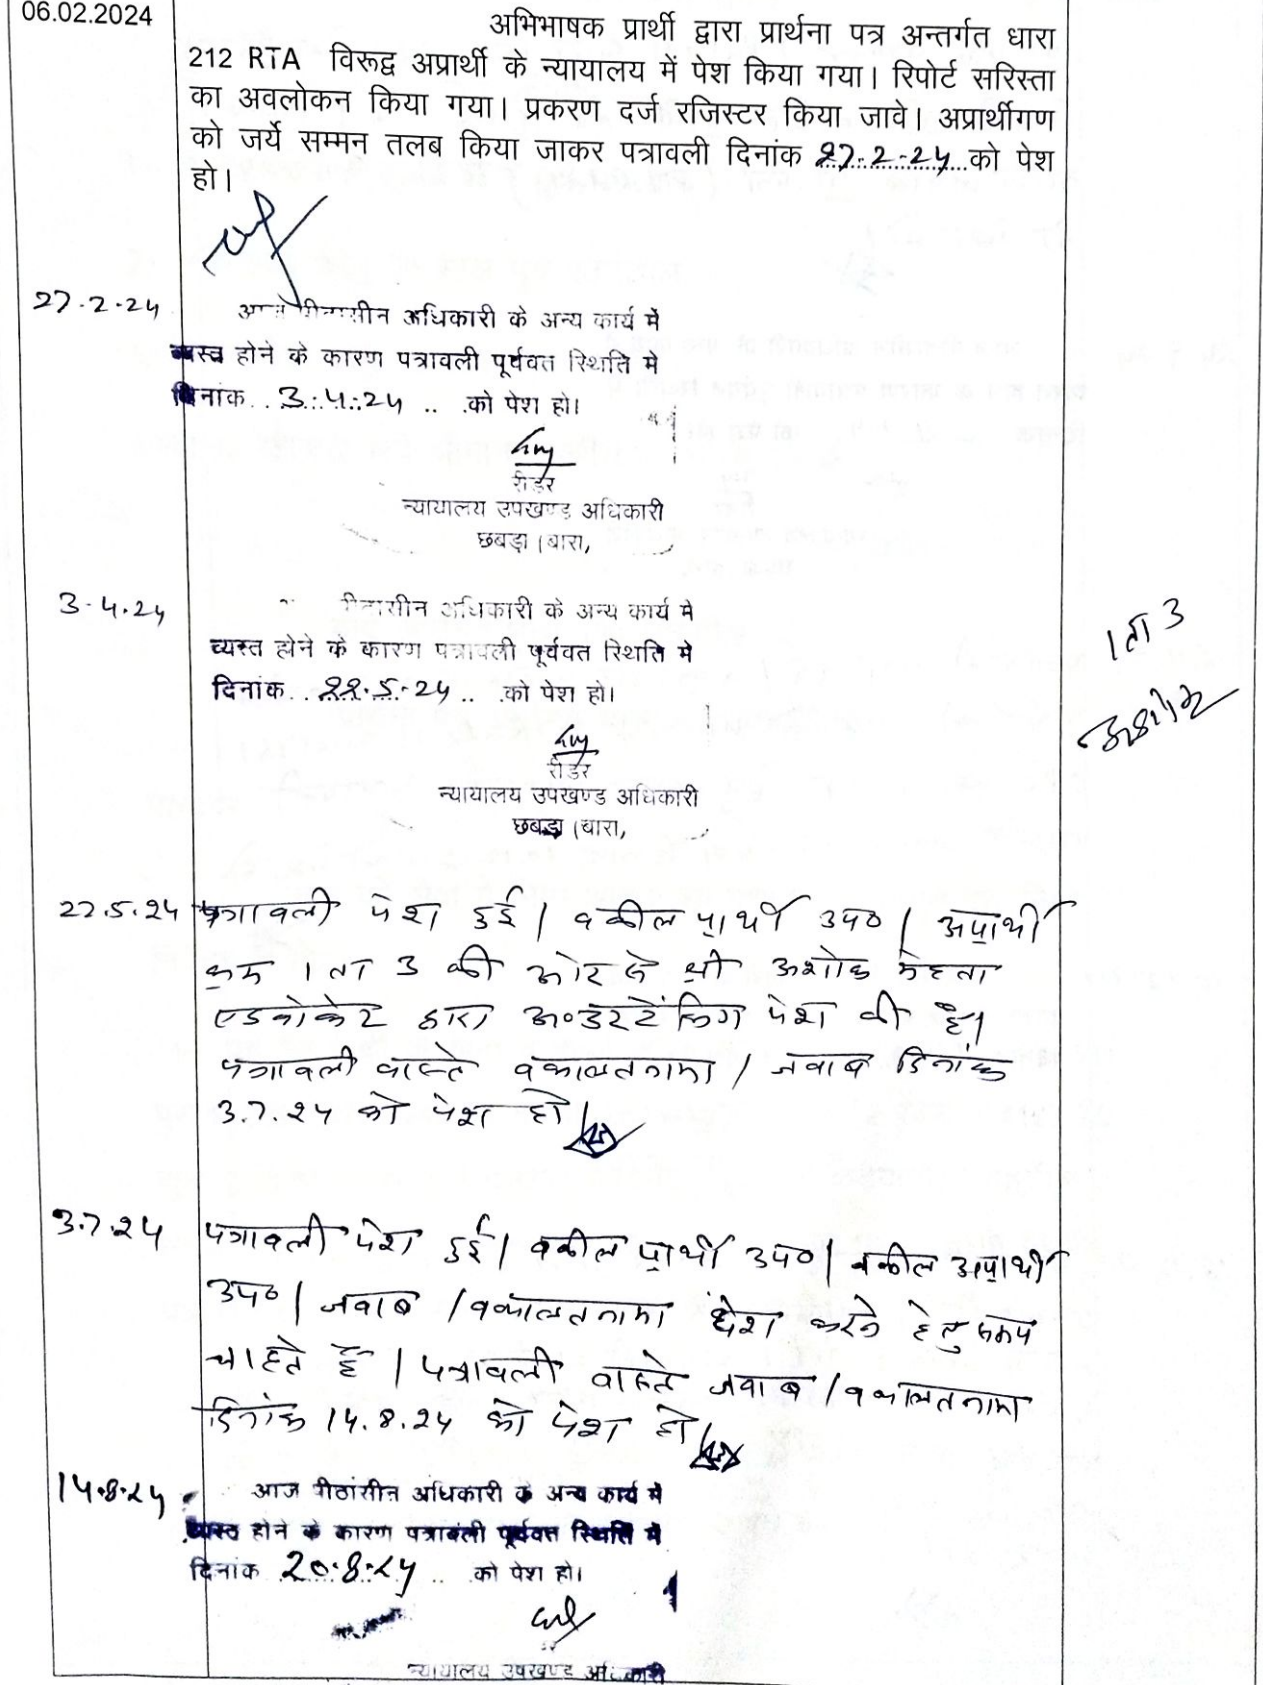 06.02.2024
अभिभाषक प्रार्थी द्वारा प्रार्थना पत्र अन्तर्गत धारा
212 RTA विरूद्व अप्रार्थी के न्यायालय में पेश किया गया। रिपोर्ट सरिस्ता
का अवलोकन किया गया। प्रकरण दर्ज रजिस्टर किया जावे। अप्रार्थीगण
को जर्ये सम्मन तलब किया जाकर पत्रावली दिनांक 27-2-24 को पेश
हो।
27-2-24
आज पीठासीन अधिकारी के अन्य कार्य में
व्यस्त होने के कारण पत्रावली पूर्ववत स्थिति मे
दिनांक 3.4.24 को पेश हो।
रीडर
न्यायालय उपखण्ड अधिकारी
छबड़ा (बारा,
3.4.24
पीठासीन अधिकारी के अन्य कार्य मे
व्यस्त होने के कारण पत्रावली पूर्ववत स्थिति मे
दिनांक 22.5.24 को पेश हो।
1 ता 3
अशोक
रीडर
न्यायालय उपखण्ड अधिकारी
छबड़ा (बारा,
22.5.24
पत्रावली पेश हुई। वकील प्रार्थी उप०। अप्रार्थी
क्रम 1 ता 3 की ओर से श्री अशोक मेहता
एडवोकेट द्वारा अण्डरटेंकिग पेश की है।
पत्रावली वास्ते वकालतनामा / जवाब दिनांक
3.7.24 को पेश हो।
3.7.24
पत्रावली पेश हुई। वकील प्रार्थी उप०। वकील अप्रार्थी
उप०। जवाब / वकालतनामा पेश करने हेतु समय
चाहते हैं। पत्रावली वास्ते जवाब / वकालतनामा
दिनांक 14.8.24 को पेश हो।
14.8.24
आज पीठांसीन अधिकारी के अन्य कार्य में
व्यस्त होने के कारण पत्रावली पूर्ववत स्थिति में
दिनांक 20.8.24 को पेश हो।
न्यायालय उपखण्ड अधिकारी